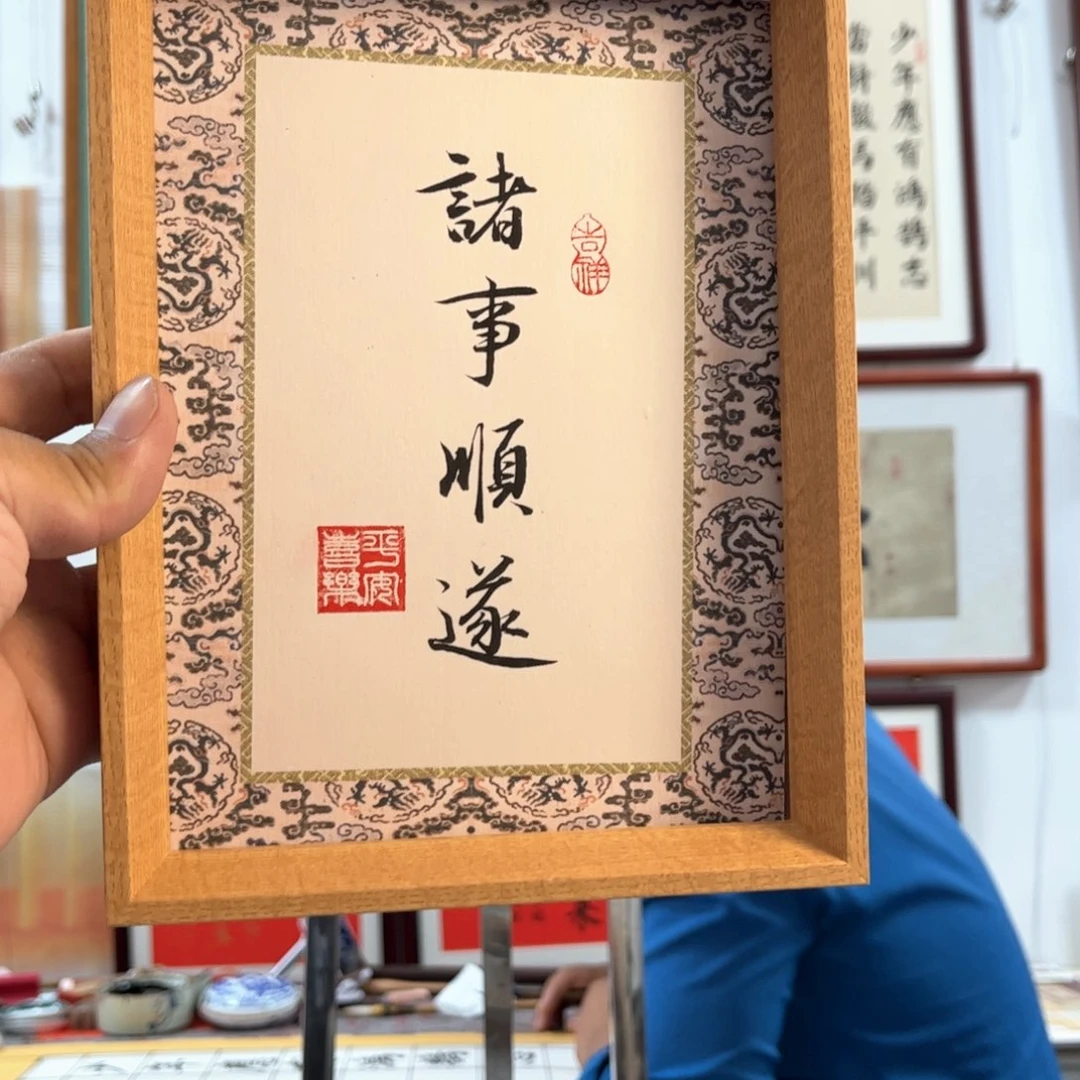 諸事順遂
吉祥
平安喜樂
少年應有鴻鵠志
當騎駿馬踏平川